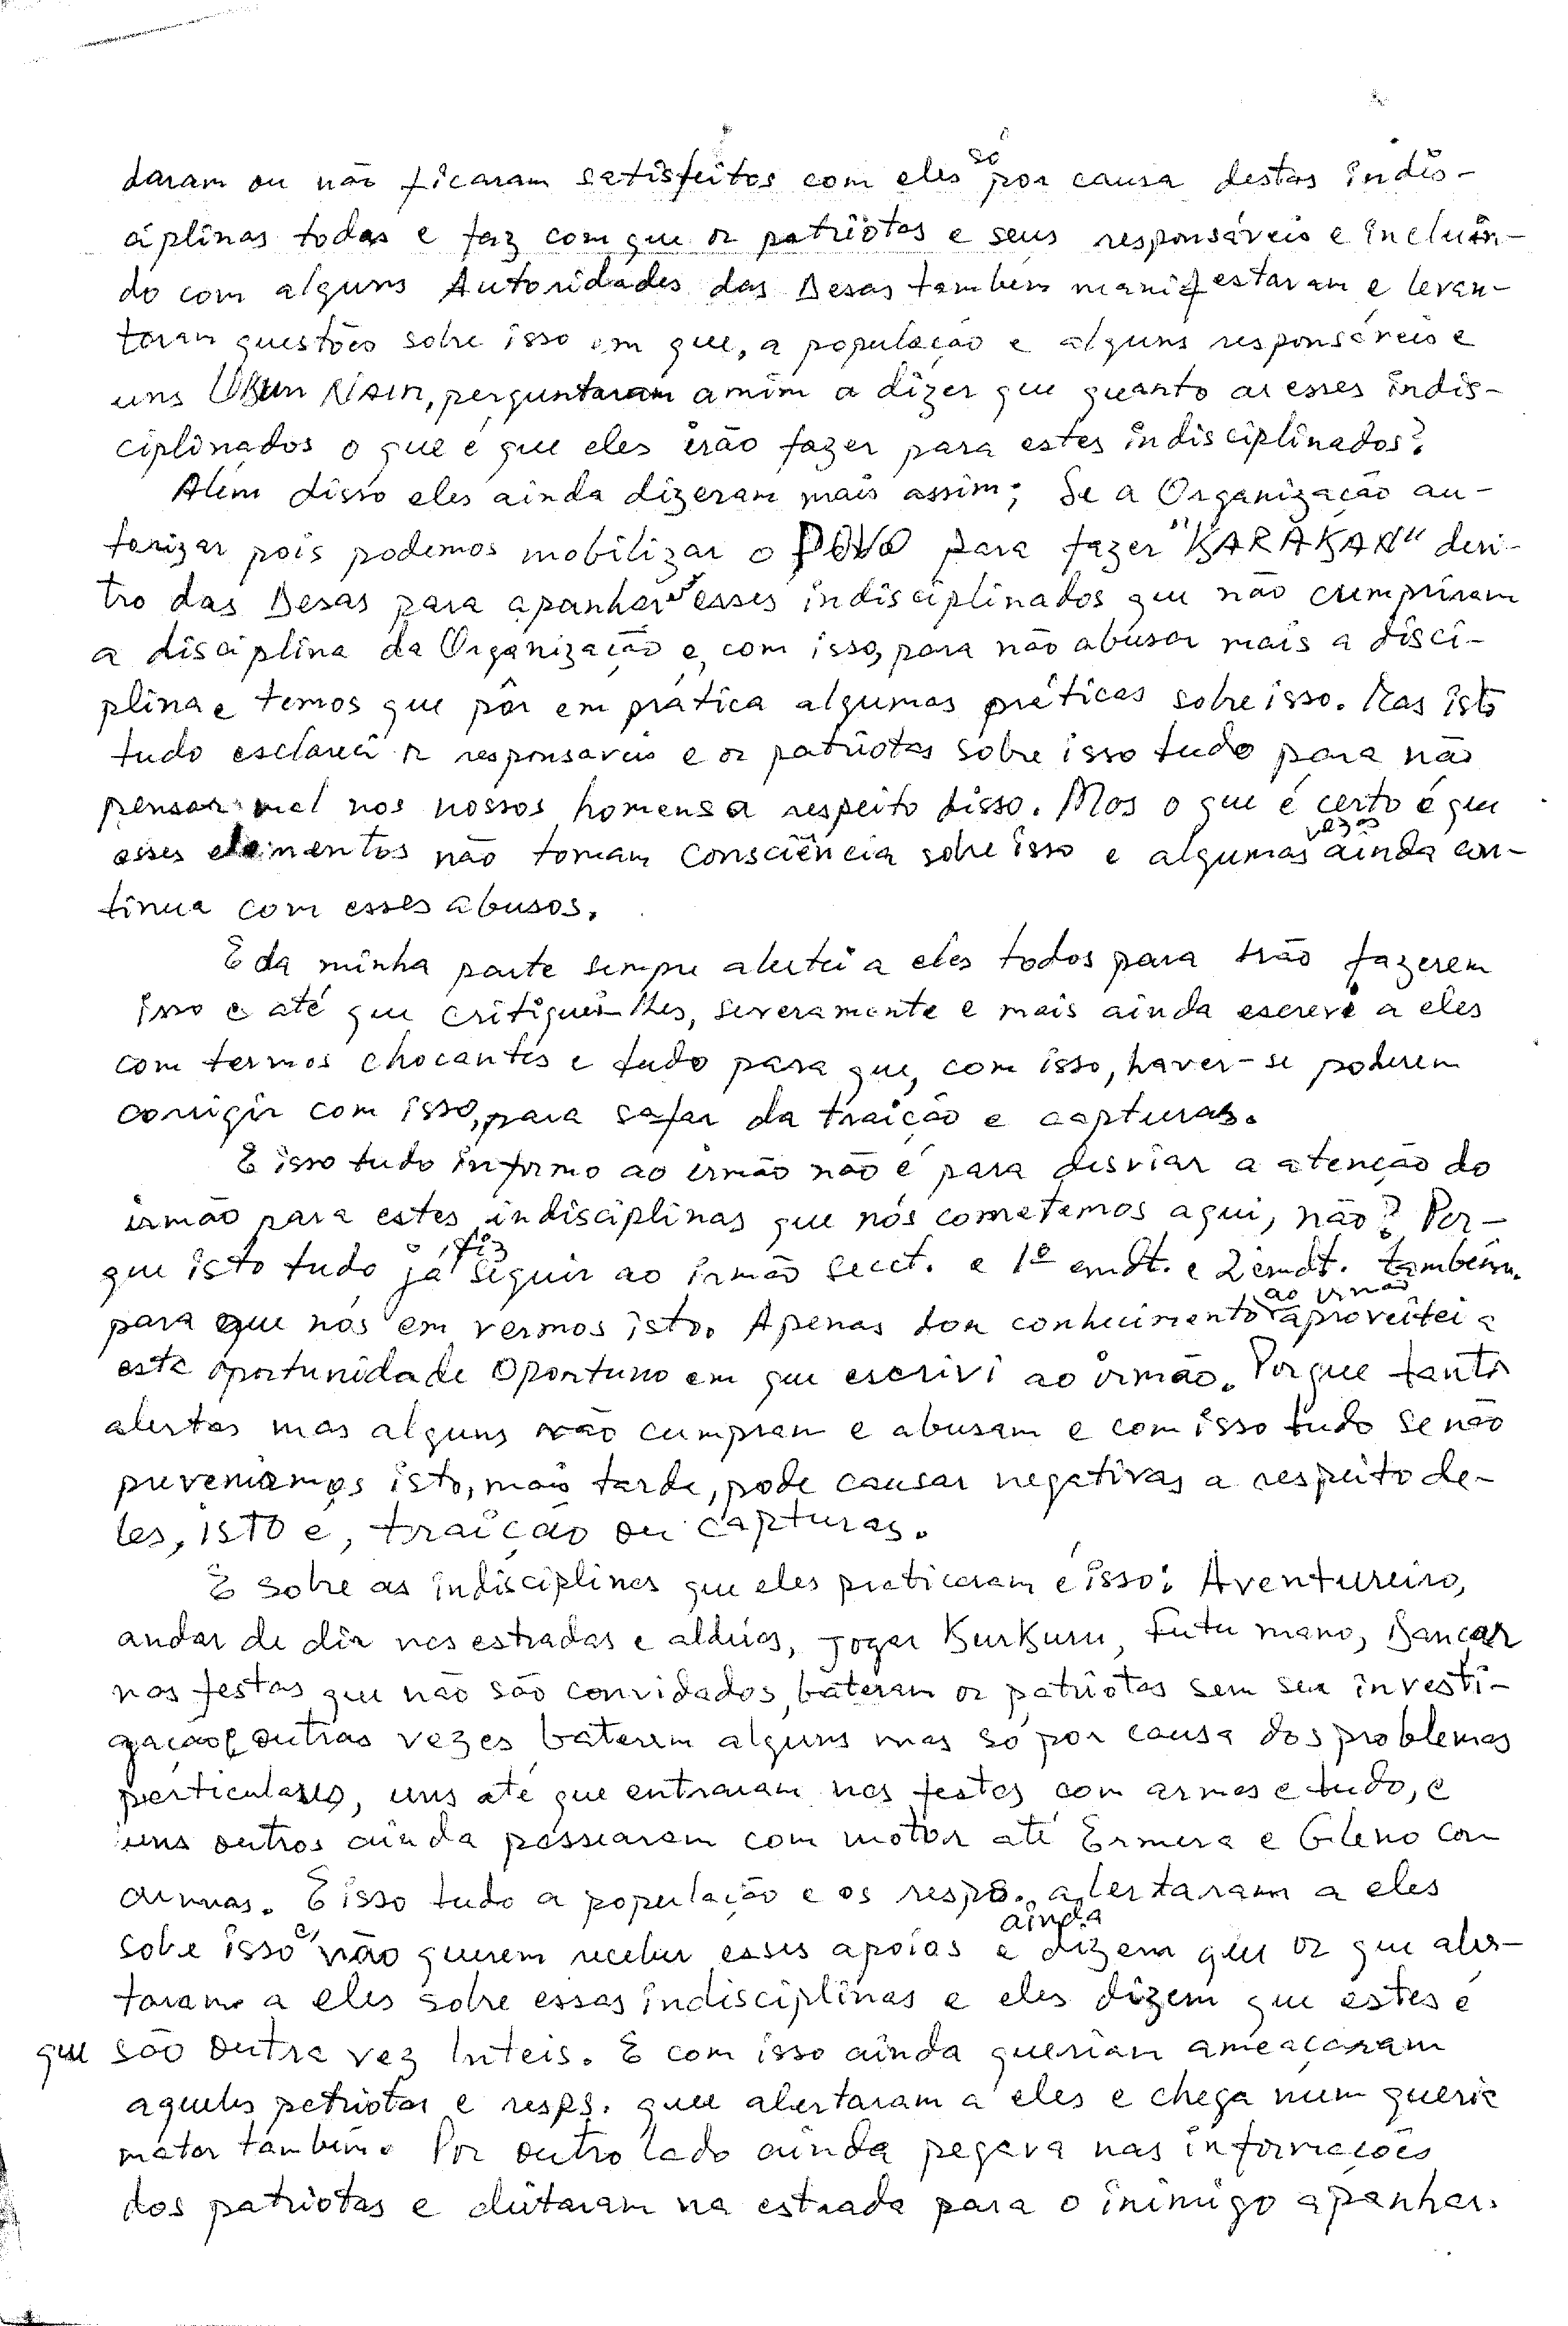 daram ou não ficaram satisfeitos com eles só por causa destas indis-
ciplinas todas e faz com que os patriotas e seus responsáveis e incluin-
do com alguns Autoridades das Desas também manifestaram e levan-
taram questões sobre isso em que, a população e alguns responsáveis e
uns Ukun Nain, perguntaram a mim a dizer que quanto as esses indis-
ciplinados o que é que eles irão fazer para estes indisciplinados?
Além disso eles ainda dizeram mais assim; Se a Organização au-
torizar pois podemos mobilizar o POVO para fazer "KARAKAN" den-
tro das Desas para apanhar esses indisciplinados que não cumpriram
a disciplina da Organização e, com isso, para não abusar mais a disci-
plina e temos que pôr em prática algumas práticas sobre isso. Mas isto
tudo esclareci os responsáveis e os patriotas sobre isso tudo para não
pensar mal nos nossos homens a respeito disso. Mas o que é certo é que
esses elementos não tomam consciência sobre isso e algumas vezes ainda con-
tinua com esses abusos.
E da minha parte sempre alertei a eles todos para não fazerem
isso e até que critiquei-lhes, severamente e mais ainda escrevi a eles
com termos chocantes e tudo para que, com isso, haver-se poderem
corrigir com isso, para safar da traição e capturas.
E isso tudo informo ao irmão não é para desviar a atenção do
irmão para estes indisciplinas que nós cometemos aqui, não? Por-
que isto tudo já fiz seguir ao irmão Secct. e 1º cmdt. e 2º cmdt. também.
para que nós em vermos isto. Apenas dou conhecimento ao irmão aproveitei a
esta oportunidade oportuno em que escrivi ao irmão. Porque tanto
alertas mas alguns não cumpram e abusam e com isso tudo se não
preveniamos isto, mais tarde, pode causar negativas a respeito de-
les, isto é, traição ou capturas.
E sobre as indisciplinas que eles praticaram é isso: Aventureiro,
andar de dia nas estradas e aldeias, jogar KurKuru, Futu mano, Dançar
nas festas que não são convidados, bateram os patriotas sem sua investi-
gação e outras vezes baterem alguns mas só por causa dos problemas
particulares, uns até que entraram nas festas com armas e tudo, e
uns outros ainda passearam com motor até Ermera e Gleno com
armas. E isso tudo a população e os respo. alertaram a eles
sobre isso e, não querem receber esses apoios e ainda dizem que os que aler-
taram a eles sobre essas indisciplinas e eles dizem que estes é
que são outra vez Inteis. E com isso ainda queriam ameaçaram
aqueles patriotas e resps. que alertaram a eles e chega num queria
matar também. Por outro lado ainda pegava nas informações
dos patriotas e deitaram na estrada para o inimigo apanhar.